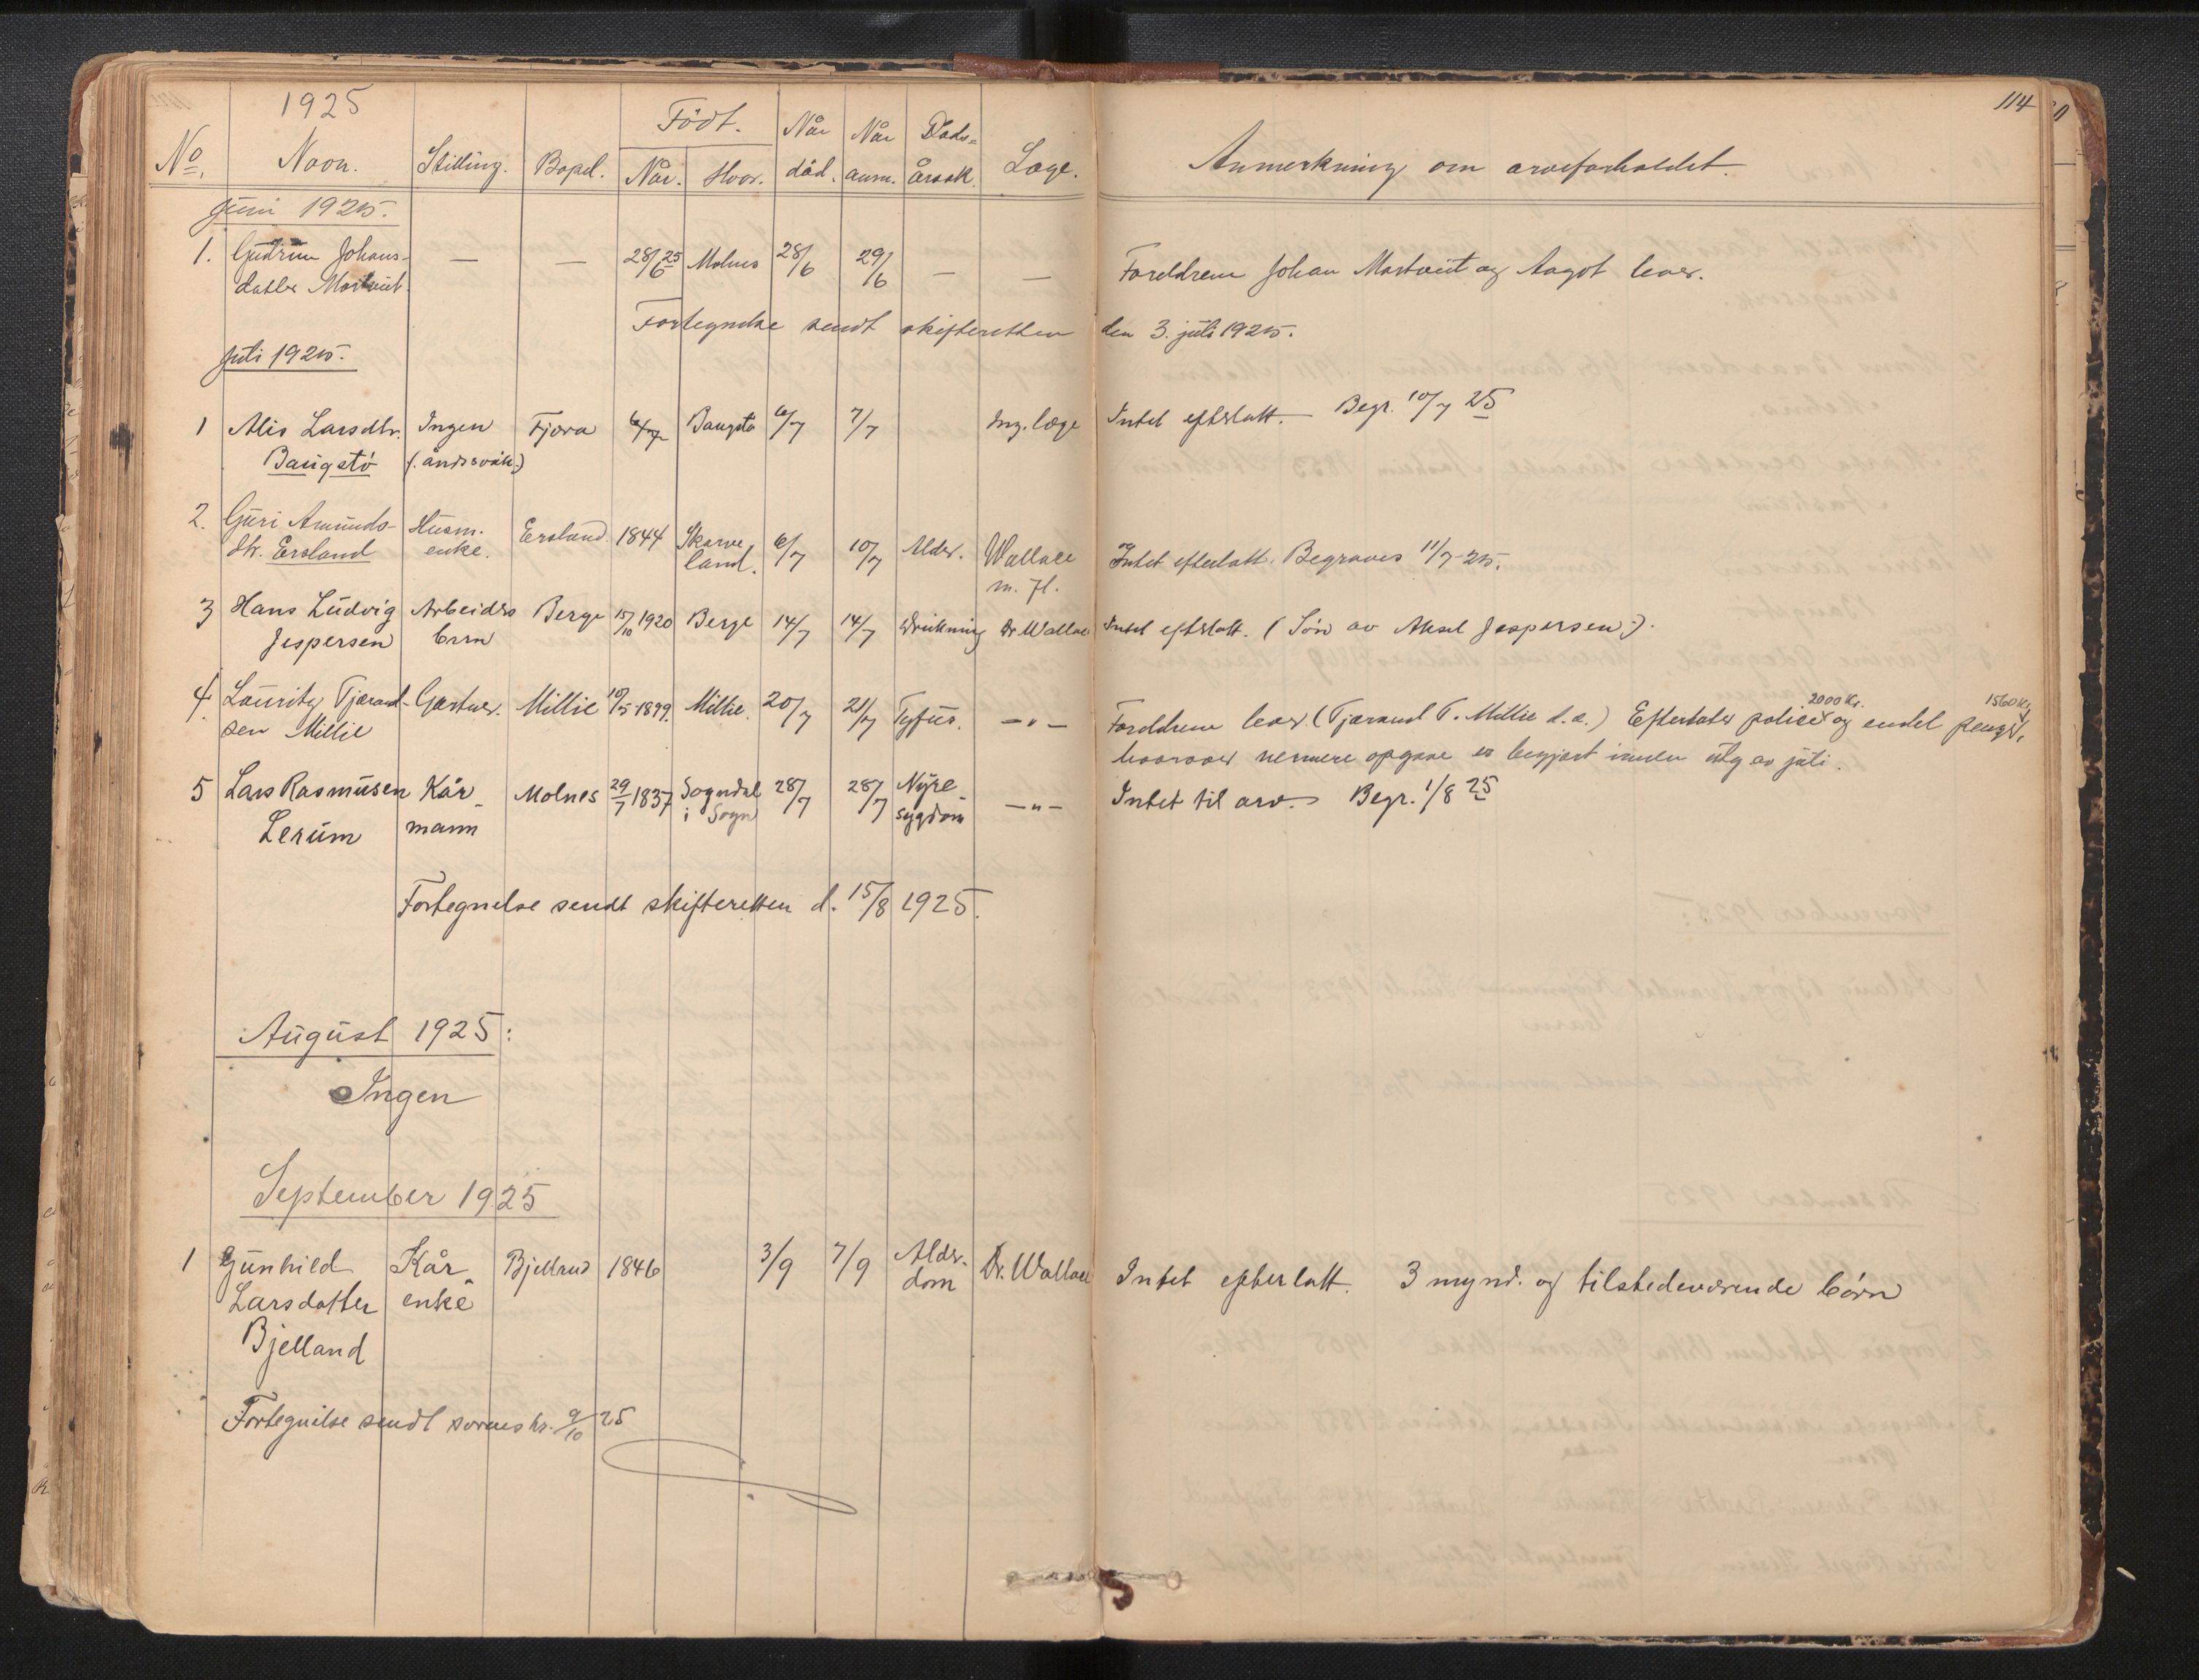 114
1925
Født. Når Når Døds-
No. Navn. Stilling. Bopel. Når. Hvor. død. anm. årsak. Læge. Anmerkning om arveforholdet.
Juni 1925.
1. Gudrun Johans- — — 28/6 25 Molnes 28/6 29/6 — — Foreldrene Johan Mostveit og Aagot lever.
datter Mostveit.
Fortegnelse sendt skifteretten den 3. juli 1925.
Juli 1925.
1 Alis Larsdtr. Ingen Fjæra Baugstø 6/7 7/7 Ing. læge Intet efterlatt. — Begr. 10/7 25
Baugstø (åndssvak.)
2. Guri Amunds- Husm. Ersland. 1844 Skarve- 6/7 10/7 Alder. Wallace Intet efterlatt. Begraves 11/7-25.
dtr. Ersland enke. land. m. fl.
3 Hans Ludvig Arbeiders Berge 15/10 1920 Berge 14/7 14/7 Drukning Dr Wallace Intet efterlatt. (Søn av Aksel Jespersen).
Jespersen barn
2000 Kr. 1560 Kr.
4. Lauritz Tjerand- Gartner. Millie 10/5-1899. Millie. 20/7 21/7 Tyfus. —"— Foreldrene lever (Tjerand T. Millie d.e.) Efterlater police og endel penger,
sen Millie hvorover nermere opgave er begjært innen utg av juli.
5 Lars Rasmusen Kår- Molnes 29/7 1837 Sogndal 28/7 28/7 Nyre- —"— Intet til arv. Begr. 1/8 25
Lerum mann i Sogn sygdom
Fortegnelse sendt skifteretten d. 15/8 1925.
August 1925:
Ingen
September 1925
1 Gunhild Kår- Bjelland 1846 3/9 7/9 Alder- Dr. Wallace Intet efterlatt. 3 mynd. og tilstedeværende børn
Larsdatter enke dom
Bjelland
Fortegnelse sendt sorenskr. 9/10 25